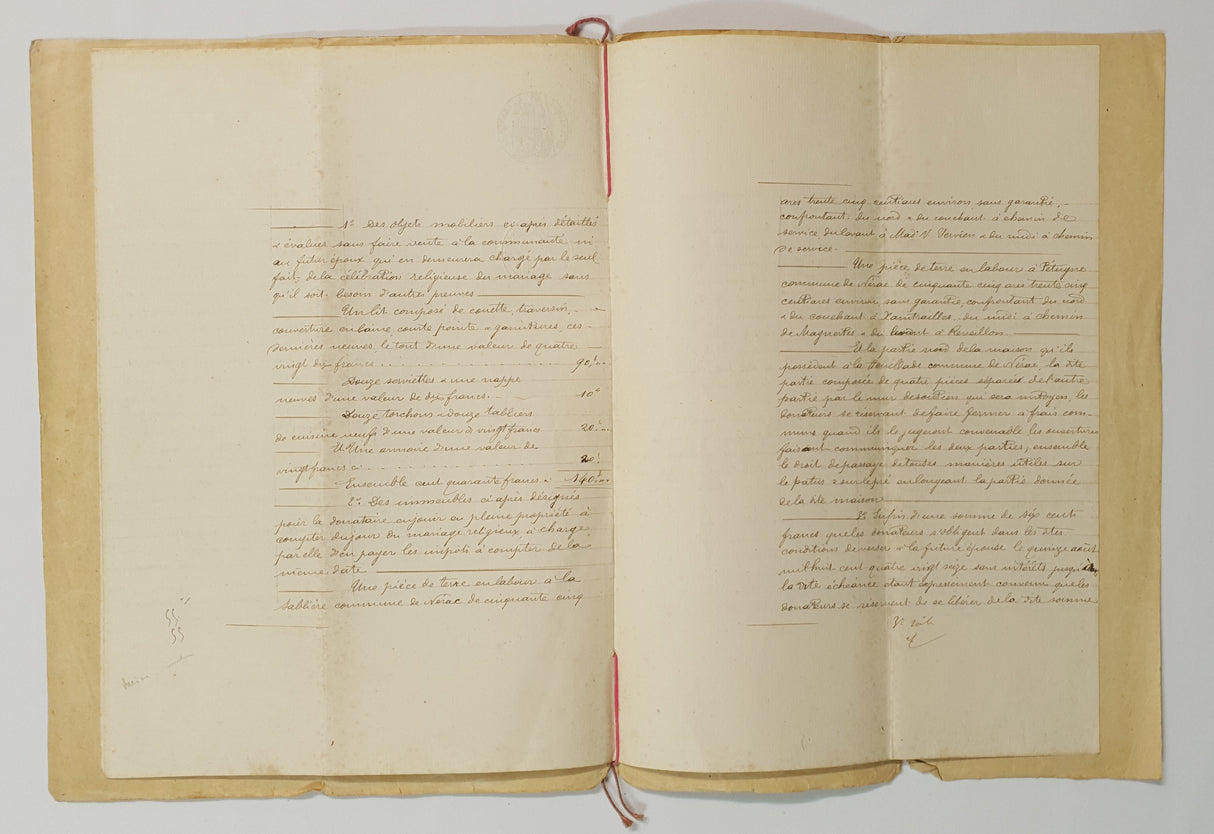 1º Des objets mobiliers ci-après détaillés
& évalués sans faire vente à la communauté ni
au futur époux qui en demeurera chargé par le seul
fait de la célébration religieuse du mariage sans
qu'il soit besoin d'autres preuves
Un lit composé de couette, traversin,
couverture en laine, courte pointe & garnitures, ces
dernières neuves, le tout d'une valeur de quatre
vingt dix francs 90f
Douze serviettes & une nappe
neuves d'une valeur de dix francs. 10
Douze torchons & douze tabliers
de cuisine neufs d'une valeur de vingt francs 20f
Et Une armoire d'une valeur de
vingt francs ci 20f
Ensemble cent quarante francs 140f
2º Des immeubles ci après désignés
pour la donataire en jouir en pleine propriété à
compter du jour du mariage religieux à charge
par elle d'en payer les impôts à compter de la
même date
Une pièce de terre en labour à la
Sablière commune de Nérac de cinquante cinq
55
55
ares trente cinq centiares environ sans garantie,
confrontant: du nord & du couchant à chemin de
service du levant à Mad. V. & du midi à chemin
de service.
Une pièce de terre en labour à
commune de Nérac de cinquante cinq ares trente cinq
centiares environ, sans garantie, confrontant du nord
& du couchant à Xaintrailles, du midi à chemin
de & du levant à Reveillon
Et la partie nord de la maison qu'ils
possèdent à la commune de Nérac, la dite
partie composée de quatre pièces séparées de l'autre
partie par le mur de soutien qui sera mitoyen, les
donateurs se réservant de faire fermer à frais com-
muns quand ils le jugeront convenable les ouvertures
faisant communiquer les deux parties, ensemble
le droit de passage de toutes manières utiles sur
le patus & sur le pré en longeant la partie donnée
de la dite maison
3º Enfin d'une somme de six cents
francs que les donateurs s'obligent dans les dites
conditions de verser à la future épouse le quinze août
mil huit cent quatre vingt seize sans intérêts jusqu'à
la dite échéance étant expressément convenu que les
donateurs se réservent de se libérer de la dite somme